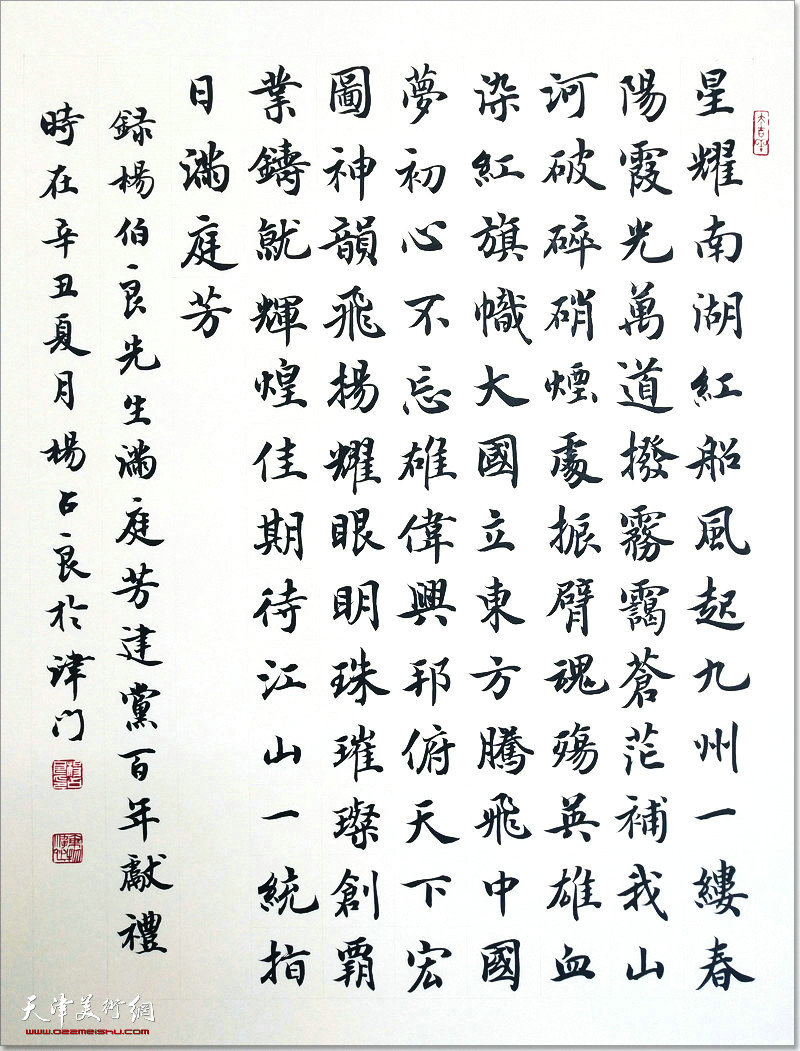 星耀南湖紅船風起九州一縷春
陽霞光萬道撥霧靄蒼茫補我山
河破碎硝煙處振臂魂殤英雄血
染紅旗幟大國立東方騰飛中國
夢初心不忘雄偉興邦俯天下宏
圖神韻飛揚耀眼明珠璀璨創霸
業鑄就輝煌佳期待江山一統指
日滿庭芳
録楊伯良先生滿庭芳建黨百年獻禮
時在辛丑夏月楊占良於津門
大吉羊
天津美術網
www.022meishu.com